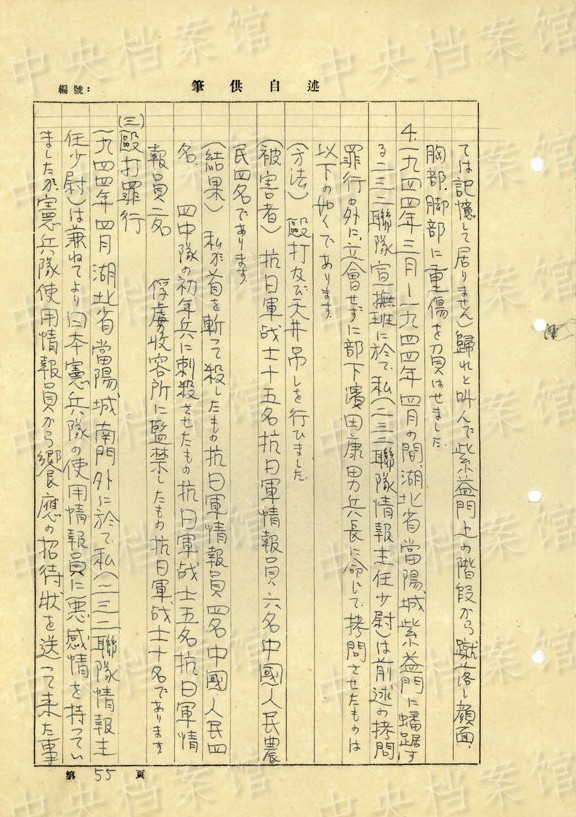 中央档案馆
編號：
筆供自述
ては記憶して居りません)歸れと叫んで紫益門上の階段から蹴落し顔面
胸部、脚部に重傷を負はせました
4.一九四四年三月—一九四四年四月の間、湖北省當陽城紫益門に蟠踞す
る二三二聯隊宣撫班に於て、私(二三二聯隊情報主任少尉)は前述の拷問
罪行の外に、立會せずに部下濱田康男兵長に命じて拷問させたものは
以下の如くであります。
(方法) 毆打及び天井吊しを行ひました
(被害者) 抗日軍战士十五名抗日軍情報員六名中國人民農
民四名であります。
(結果) 私が首を斬って殺したもの抗日軍情報員四名中國人民四
名、 四中隊の初年兵に刺殺させたもの抗日軍战士五名抗日軍情
報員二名 俘虜收容所に監禁したもの抗日軍战士十名であります
(三)毆打罪行
一九四四年四月湖北省當陽城南門外に於て、私(二三二聯隊情報主
任少尉)は兼ねてより日本憲兵隊の使用情報員に悪感情を持ってい
ましたが、憲兵隊使用情報員から饗應の招待狀を送って来た事
第 55 頁